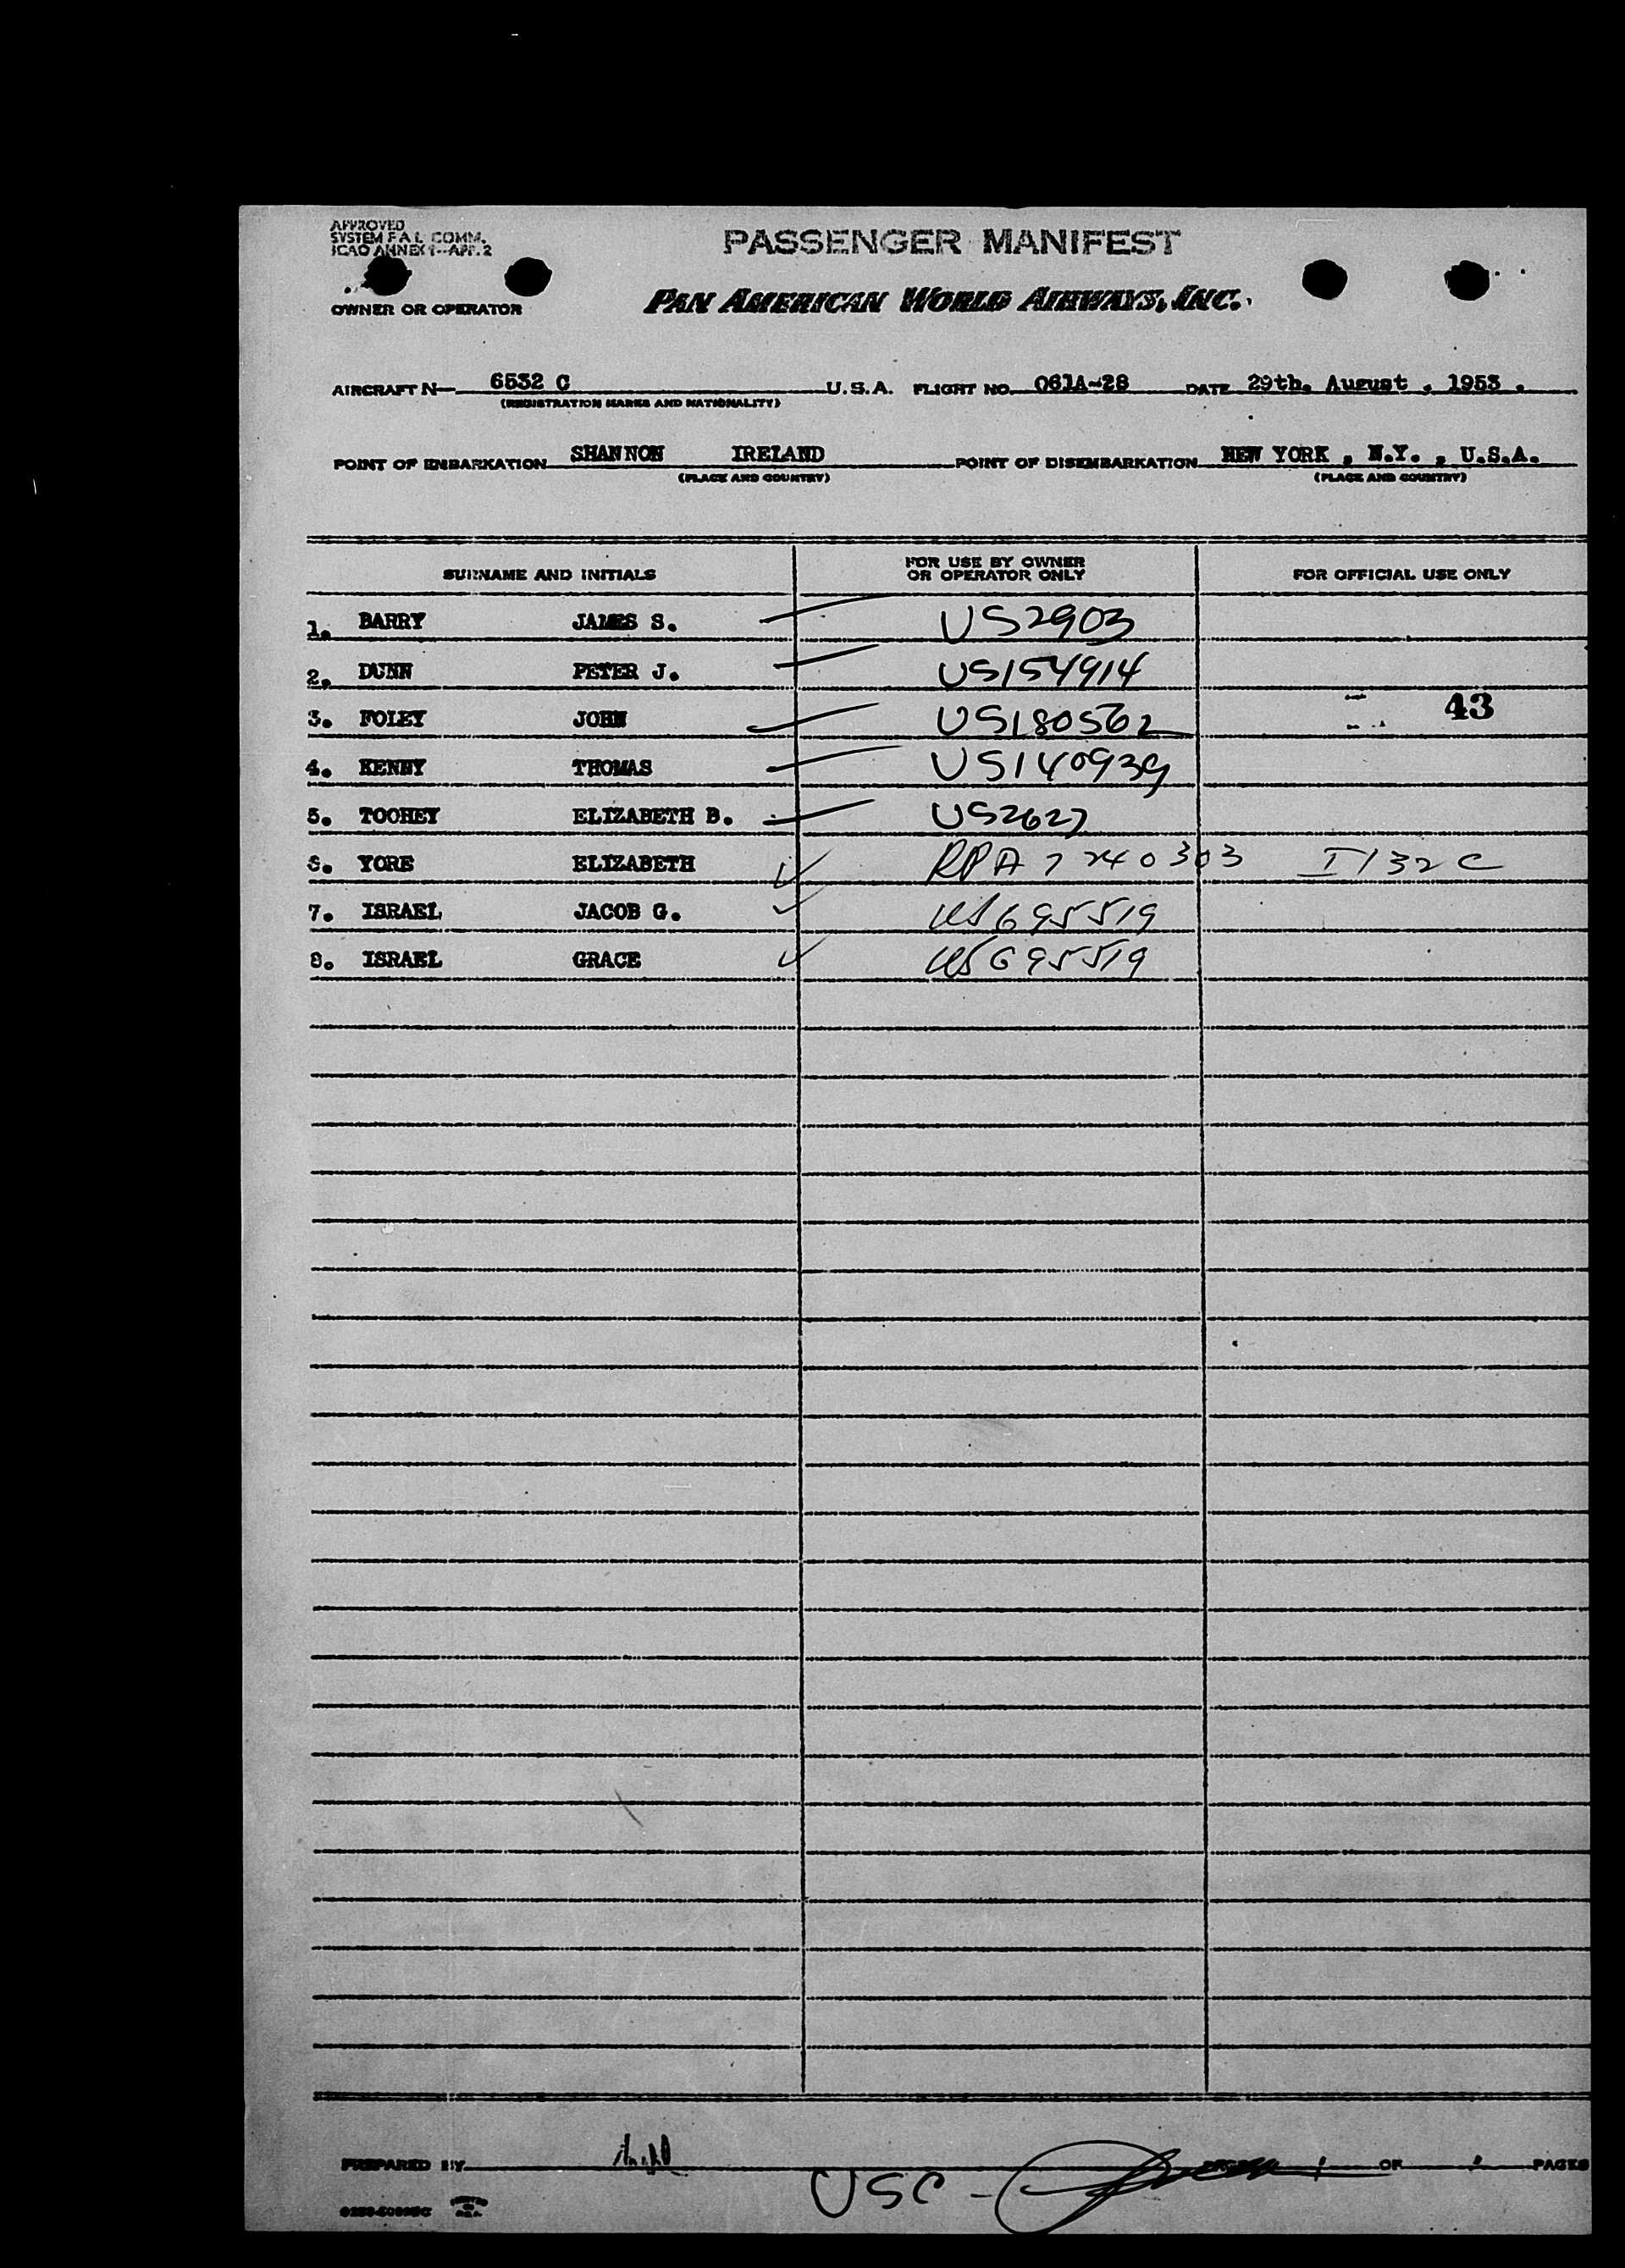 APPROVED
SYSTEM F.A.L. COMM.
ICAO ANNEX 1-APP. 2
PASSENGER MANIFEST
OWNER OR OPERATOR
PAN AMERICAN WORLD AIRWAYS, INC.
AIRCRAFT N— 6532 C U.S.A. FLIGHT NO. 061A-28 DATE 29th. August . 1953 .
(REGISTRATION MARKS AND NATIONALITY)
POINT OF EMBARKATION SHANNON IRELAND POINT OF DISEMBARKATION NEW YORK , N.Y. , U.S.A.
(PLACE AND COUNTRY) (PLACE AND COUNTRY)
SURNAME AND INITIALS FOR USE BY OWNER OR OPERATOR ONLY FOR OFFICIAL USE ONLY
1. BARRY JAMES S. US2903
2. DUNN PETER J. US154914
43
3. FOLEY JOHN US180562
4. KENNY THOMAS US140939
5. TOOHEY ELIZABETH B. US2627
6. YORE ELIZABETH RPA 7240303 I132C
7. ISRAEL JACOB G. US695519
8. ISRAEL GRACE US695519
PREPARED BY OF PAGES
USC -